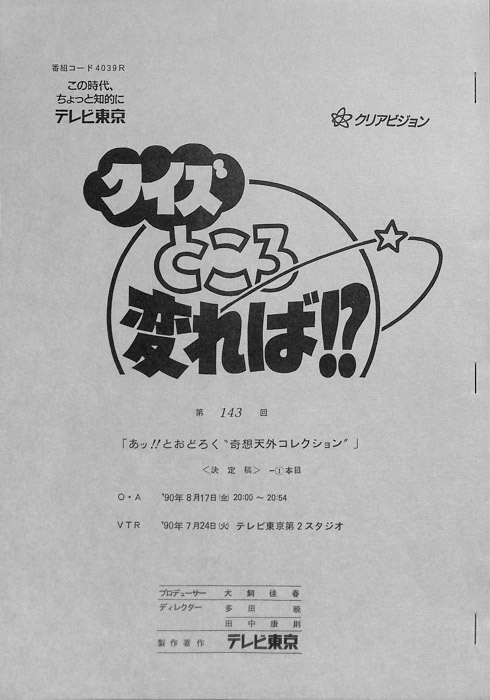 番組コード4039R
この時代、
ちょっと知的に
テレビ東京
クリアビジョン
クイズ
ところ
変れば!?
第 143 回
「あッ!!とおどろく〝奇想天外コレクション〟」
＜決定稿＞ー①本目
O・A '90年8月17日(金) 20:00～20:54
VTR '90年7月24日(火) テレビ東京第2スタジオ
プロデューサー 犬飼佳春
ディレクター 多田暁
田中康則
製作著作 テレビ東京